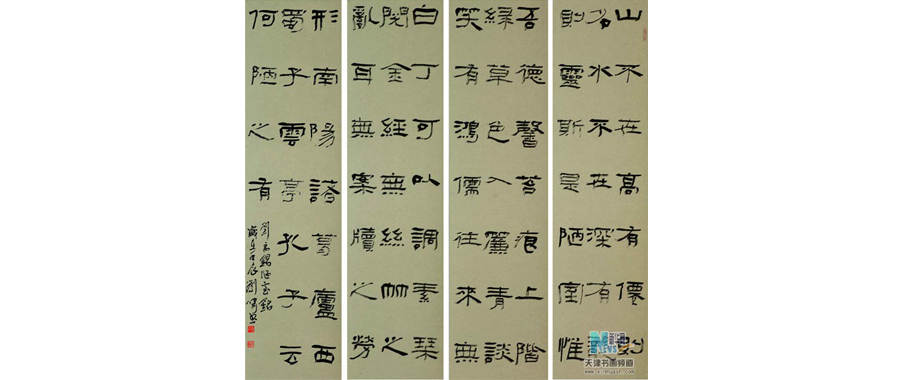 山不在高有僊則
名水不在深有
則靈斯是陋室惟
吾德馨苔痕上階
綠草色入簾青談
笑有鴻儒往來無
白丁可以調素琹
閱金經無絲竹之
亂耳無案牘之勞
形南陽諸葛廬西
蜀子雲亭孔子云
何陋之有
劉禹錫陋室銘
天津书画频道